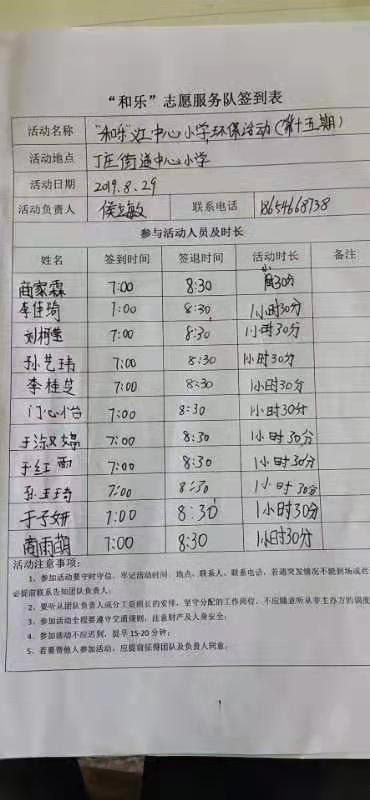 “和乐”志愿服务队签到表
活动名称 “和乐”丁庄中心小学环保活动(第十五期)
活动地点 丁庄街道中心小学
活动日期 2019.8.29
活动负责人 侯立敏 联系电话 18654668738
参与活动人员及时长
姓名 签到时间 签退时间 活动时长 备注
商家霖 7:00 8:30 30分
李佳琦 7:00 8:30 1小时30分
刘柯莹 7:00 8:30 1小时30分
孙艺玮 7:00 8:30 1小时30分
李桂芝 7:00 8:30 1小时30分
门心怡 7:00 8:30 1小时30分
于 7:00 8:30 1小时30分
于红雨 7:00 8:30 1小时30分
孙玉琦 7:00 8:30 1小时30分
于子妍 7:00 8:30 1小时30分
商雨萌 7:00 8:30 1小时30分
活动注意事项:
1、参加活动要守时守位,牢记活动时间、地点、联系人、联系电话,若遇突发情况不能到场或者
必提前联系告知团队负责人。
2、要听从团队负责人或分工组组长的安排,坚守分配的工作岗位,不应随意听从非主办方的调度
3、参加活动全程要遵守交通规则,注意财产及人身安全;
4、参加活动不应迟到,提早15-20分钟;
5、若要替他人参加活动,应提前征得团队及负责人同意。
1